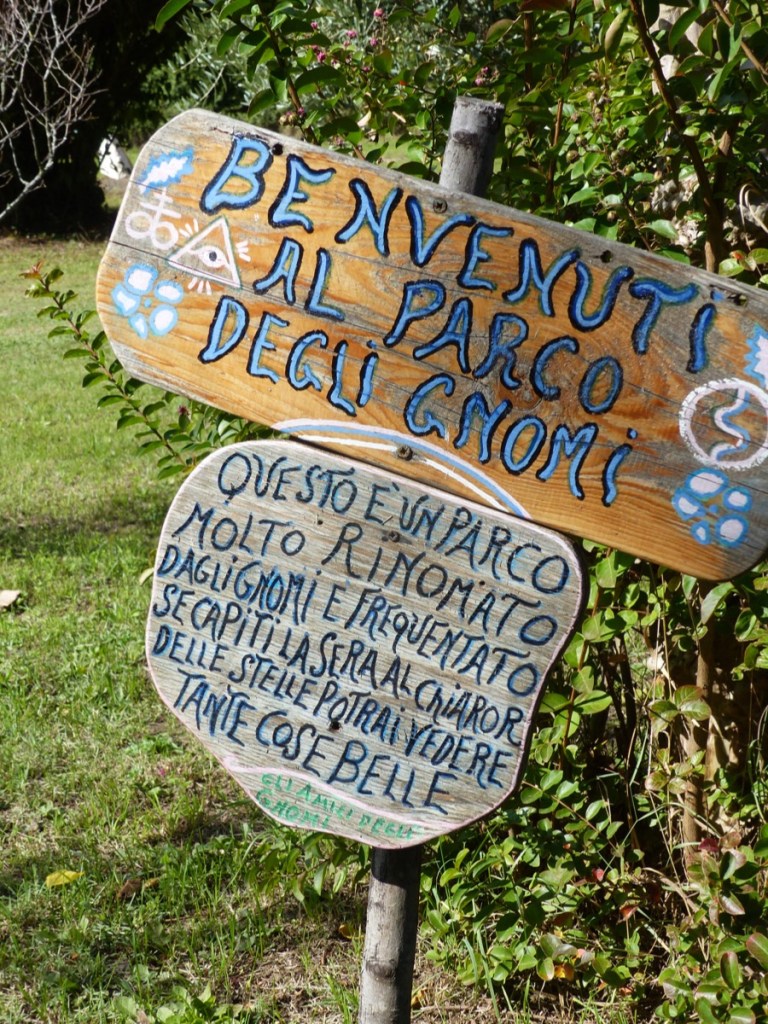 BENVENUTI
AL PARCO
DEGLI GNOMI
QUESTO E' UN PARCO
MOLTO RINOMATO
DAGLI GNOMI E FREQUENTATO
SE CAPITI LA SERA AL CHIAROR
DELLE STELLE POTRAI VEDERE
TANTE COSE BELLE
GLI AMICI DEGLI
GNOMI